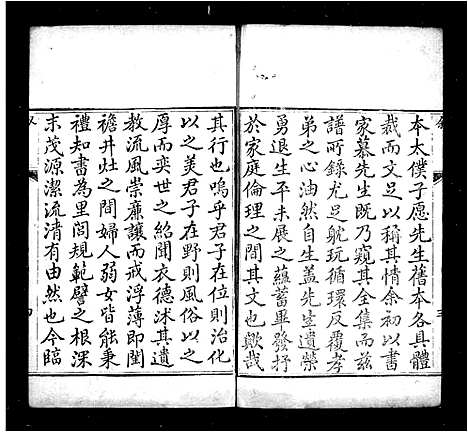 本太僕子愿先生舊本各具體
裁而文足以稱其情余初以書
家慕先生既乃窺其全集而茲
譜所錄尤足躭玩循環反覆孝
弟之心油然自生蓋先生遺榮
勇退生平未展之蘊蓄畢發抒
於家庭倫理之間其文也歟哉
其行也嗚乎君子在位則治化
以之美君子在野則風俗以之
厚而奕世之紹聞衣德述其遺
教流風崇廉讓而戒浮薄即閨
襜井灶之間婦人弱女皆能秉
禮知書為里閭規範譬之根深
末茂源潔流清有由然也今臨